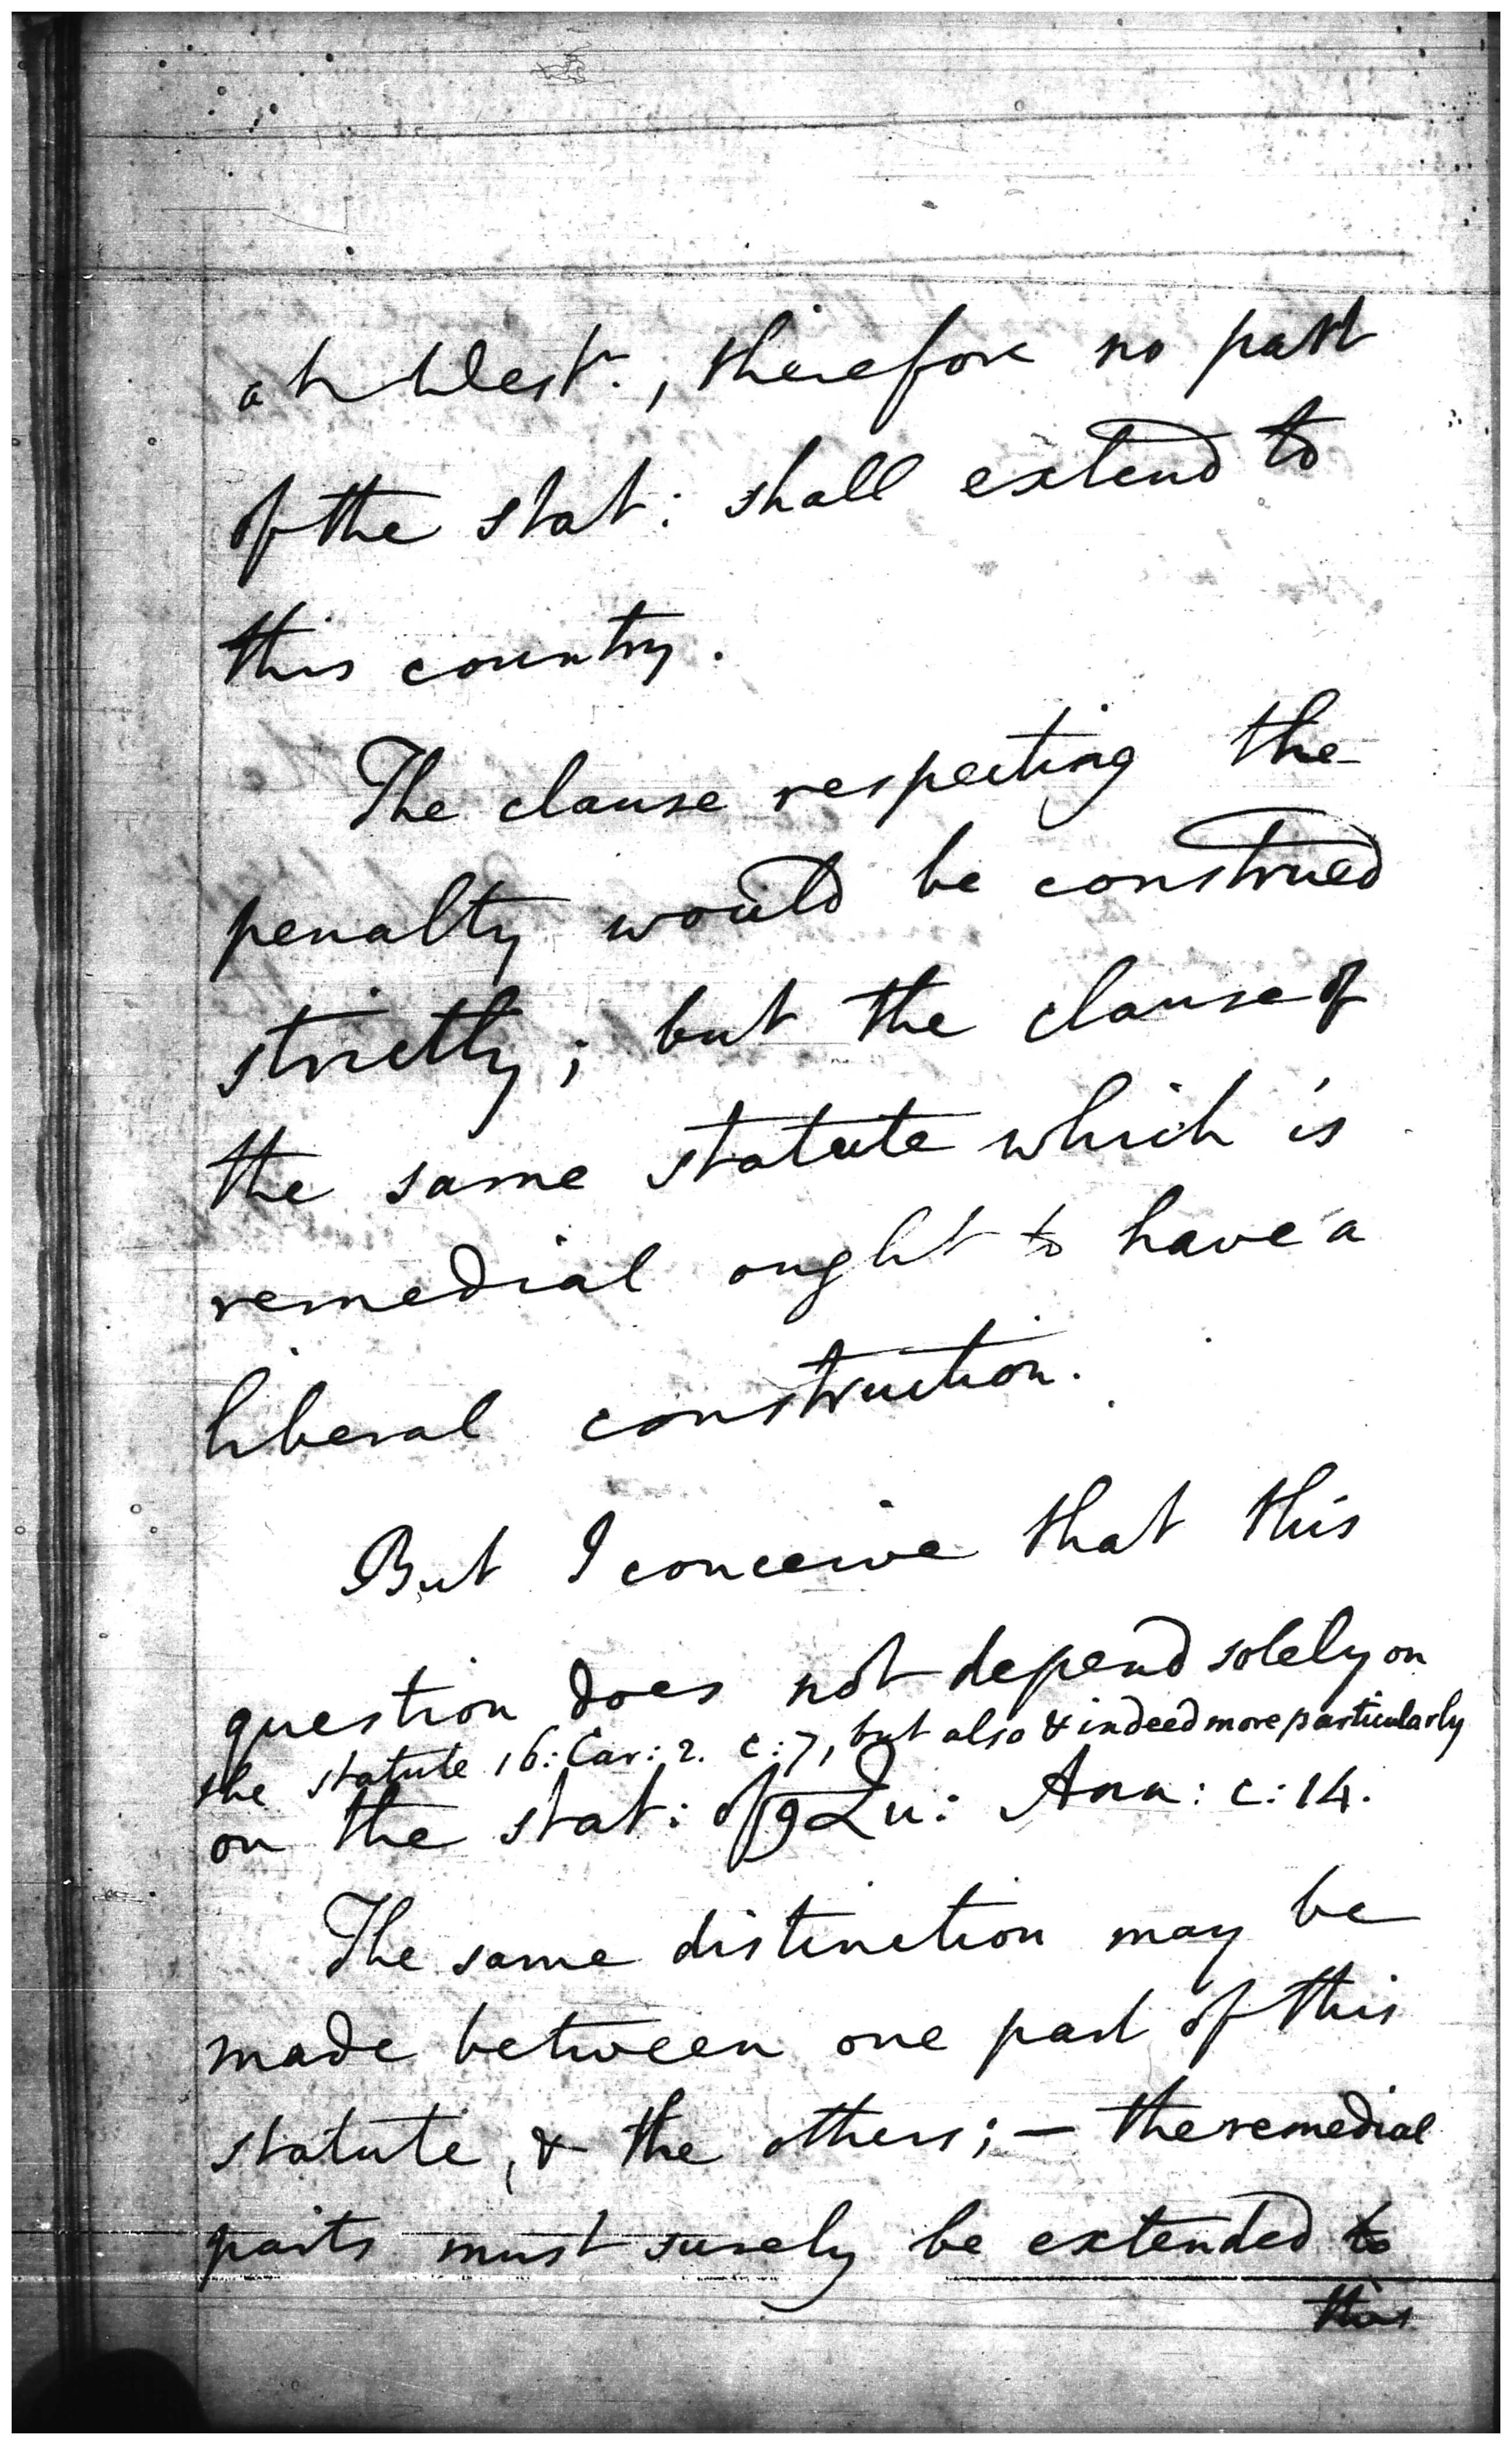 at West:, therefore no part
of the stat: shall extend to
this country.
The clause respecting the
penalty would be construed
strictly; but the clause of
the same statute which is
remedial ought to have a
liberal construction.
But I conceive that this
question does not depend solely on
the statute 16: Car: 2. c: 7, but also & indeed more particularly
on the stat: of 9 Qu: Ann: c: 14.
The same distinction may be
made between one part of this
statute, & the others; — the remedial
parts must surely be extended to
this